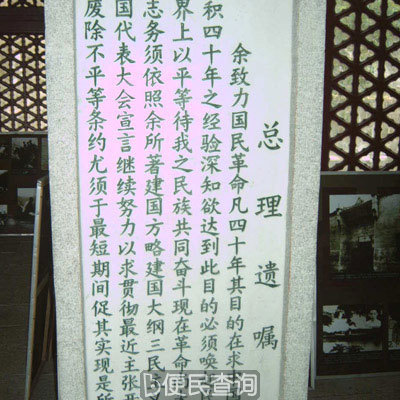 总理遗嘱
余致力国民革命凡四十年其目的在求
积四十年之经验深知欲达到此目的必须唤
界上以平等待我之民族共同奋斗现在革命
志务须依照余所著建国方略建国大纲三民
国代表大会宣言继续努力以求贯彻最近主张开
废除不平等条约尤须于最短期间促其实现是所
便民查询